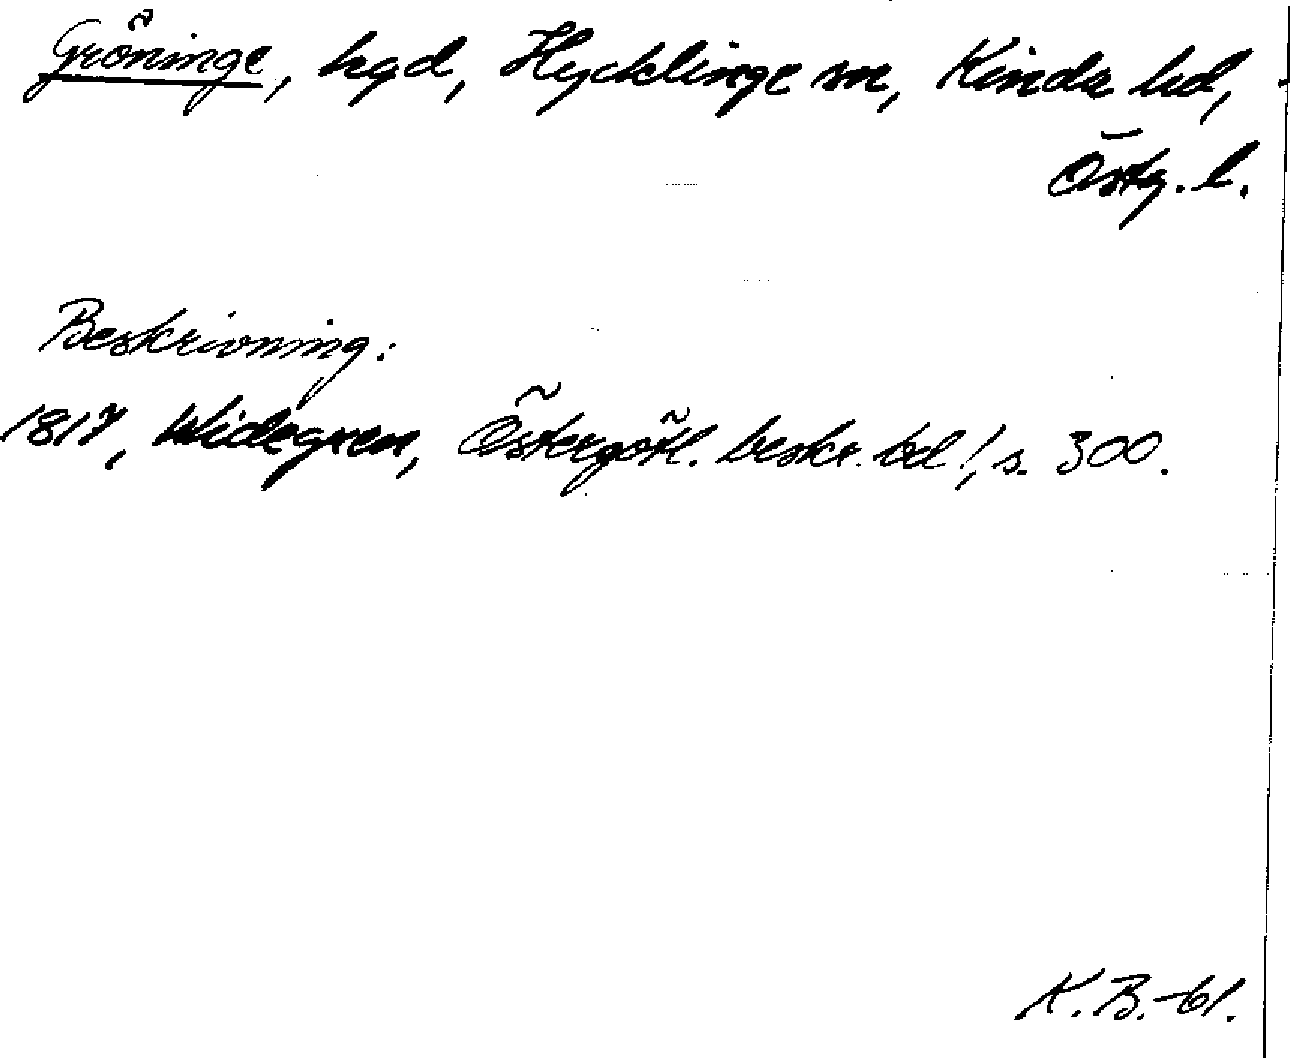 Gröninge, hgd, Hycklinge sn, Kinda hd,
Östg. l.
Beskrivning:
1817, Widegren, Östergötl. beskr. bd 1, s. 300.
K.B.-61.